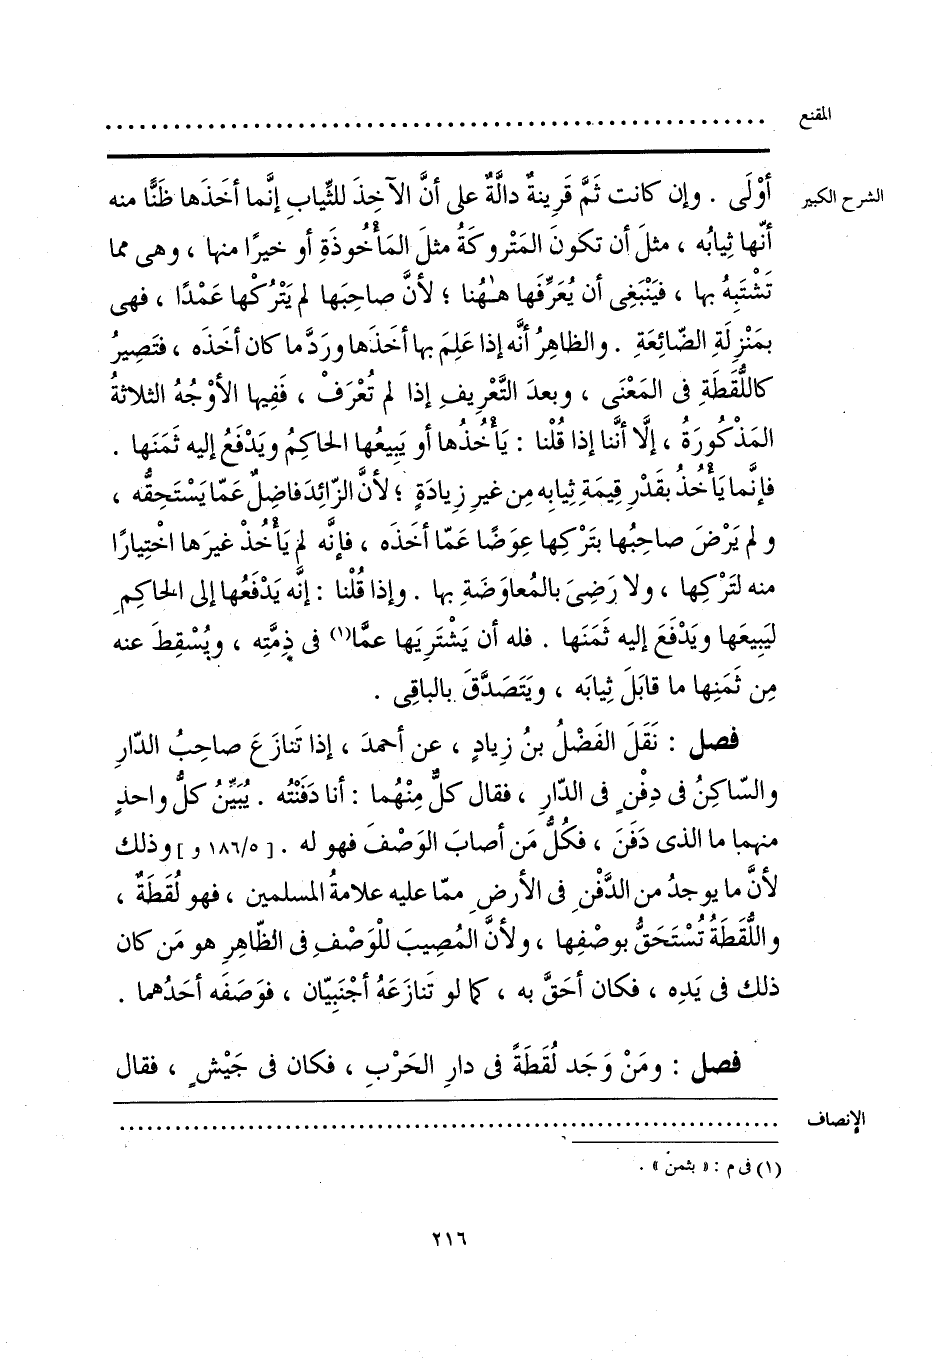 المقنع ........................................................
الشرح الكبير أَوْلَى . وإن كانت ثَمَّ قَرِينةٌ دالَّةٌ على أنَّ الآخِذَ للثِّيابِ إنَّما أخَذَها ظَنًّا منه
أنَّها ثِيابُه ، مثلَ أن تكونَ المَتْروكَةُ مثلَ المَأْخُوذَةِ أو خيرًا منها ، وهى مما
تَشْتَبِهُ بها ، فيَنْبَغِى أن يُعَرِّفَها هـٰهُنا ؛ لأنَّ صاحِبَها لم يَتْرُكْها عَمْدًا ، فهى
بمَنْزِلَةِ الضّائِعَةِ . والظاهِرُ أنَّه إذا عَلِمَ بها أخَذَها ورَدَّ ما كان أخَذَه ، فتَصِيرُ
كاللُّقَطَةِ فى المَعْنَى ، وبعدَ التَّعْرِيفِ إذا لم تُعْرَفْ ، فَفِيها الأَوْجُهُ الثلاثةُ
المَذْكُورَةُ ، إلَّا أنَّنا إذا قُلْنا : يَأْخُذُها أو يَبِيعُها الحاكِمُ ويَدْفَعُ إليه ثَمَنَها .
فإنَّما يَأْخُذُ بقَدْرِ قِيمَةِ ثِيابِه مِن غيرِ زِيادَةٍ ؛ لأنَّ الزّائِدَ فاضِلٌ عَمّا يَسْتَحِقُّه ،
ولم يَرْضَ صاحِبُها بتَرْكِها عِوَضًا عَمّا أخَذَه ، فإنَّه لم يَأْخُذْ غيرَها اخْتِيارًا
منه لتَرْكِها ، ولا رَضِىَ بالمُعاوَضَةِ بها . وإذا قُلْنا : إنَّه يَدْفَعُها إلى الحاكِمِ
ليَبِيعَها ويَدْفَعَ إليه ثَمَنَها . فله أن يَشْتَرِيَها عمَّا(١) فى ذِمَّتِه ، ويُسْقِطَ عنه
مِن ثَمَنِها ما قابَلَ ثِيابَه ، ويَتَصَدَّقَ بالباقِى .
فصل : نَقَلَ الفَضْلُ بنُ زِيادٍ ، عن أحمدَ ، إذا تَنازَعَ صاحِبُ الدّارِ
والسّاكِنُ فى دِفْنٍ فى الدّارِ ، فقال كلٌّ مِنْهُما : أنا دَفَنْتُه . يُبَيِّنُ كلُّ واحدٍ
منهما ما الذى دَفَنَ ، فكُلُّ مَن أصابَ الوَصْفَ فهو له . [ ١٨٦/٥ و ] وذلك
لأنَّ ما يوجدُ من الدَّفْنِ فى الأرضِ ممّا عليه علامةُ المسلمين ، فهو لُقَطَةٌ ،
واللُّقَطَةُ تُسْتَحَقُّ بوصْفِها ، ولأنَّ المُصِيبَ للْوَصْفِ فى الظّاهِرِ هو مَن كان
ذلك فى يَدِه ، فكان أحَقَّ به ، كما لو تَنازَعَهُ أجْنَبِيّان ، فوَصَفَه أحَدُهما .
فصل : ومَنْ وَجَد لُقَطَةً فى دارِ الحَرْبِ ، فكان فى جَيْشٍ ، فقال
الإنصاف ........................................................
(١) فى م : « بثمن » .
٢١٦